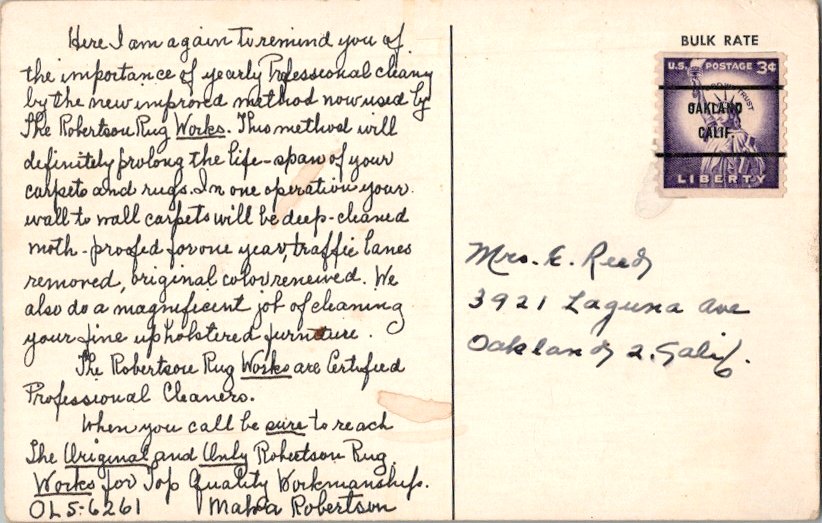 Here I am again to remind you of
the importance of yearly Professional cleaning
by the new improved method now used by
The Robertson Rug Works. This method will
definitely prolong the life-span of your
carpets and rugs. In one operation your
wall to wall carpets will be deep-cleaned
moth-proofed for one year, traffic lanes
removed, original color renewed. We
also do a magnificent job of cleaning
your fine upholstered furniture.
The Robertson Rug Works are Certified
Professional Cleaners.
When you call be sure to reach
The Original and Only Robertson Rug
Works for Top Quality Workmanship.
OL 5-6261 Robertson
BULK RATE
U.S. POSTAGE 3¢
IN GOD WE TRUST
OAKLAND
CALIF.
LIBERTY
Mrs. E. Reed
3921 Laguna Ave
Oakland 2. Calif.